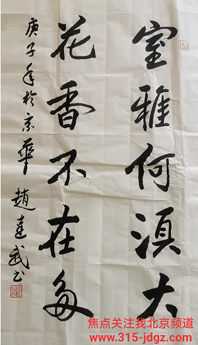 室雅何須大
花香不在多
庚子年於京華趙達武書
焦点关注我北京频道
www.315-jdgz.com